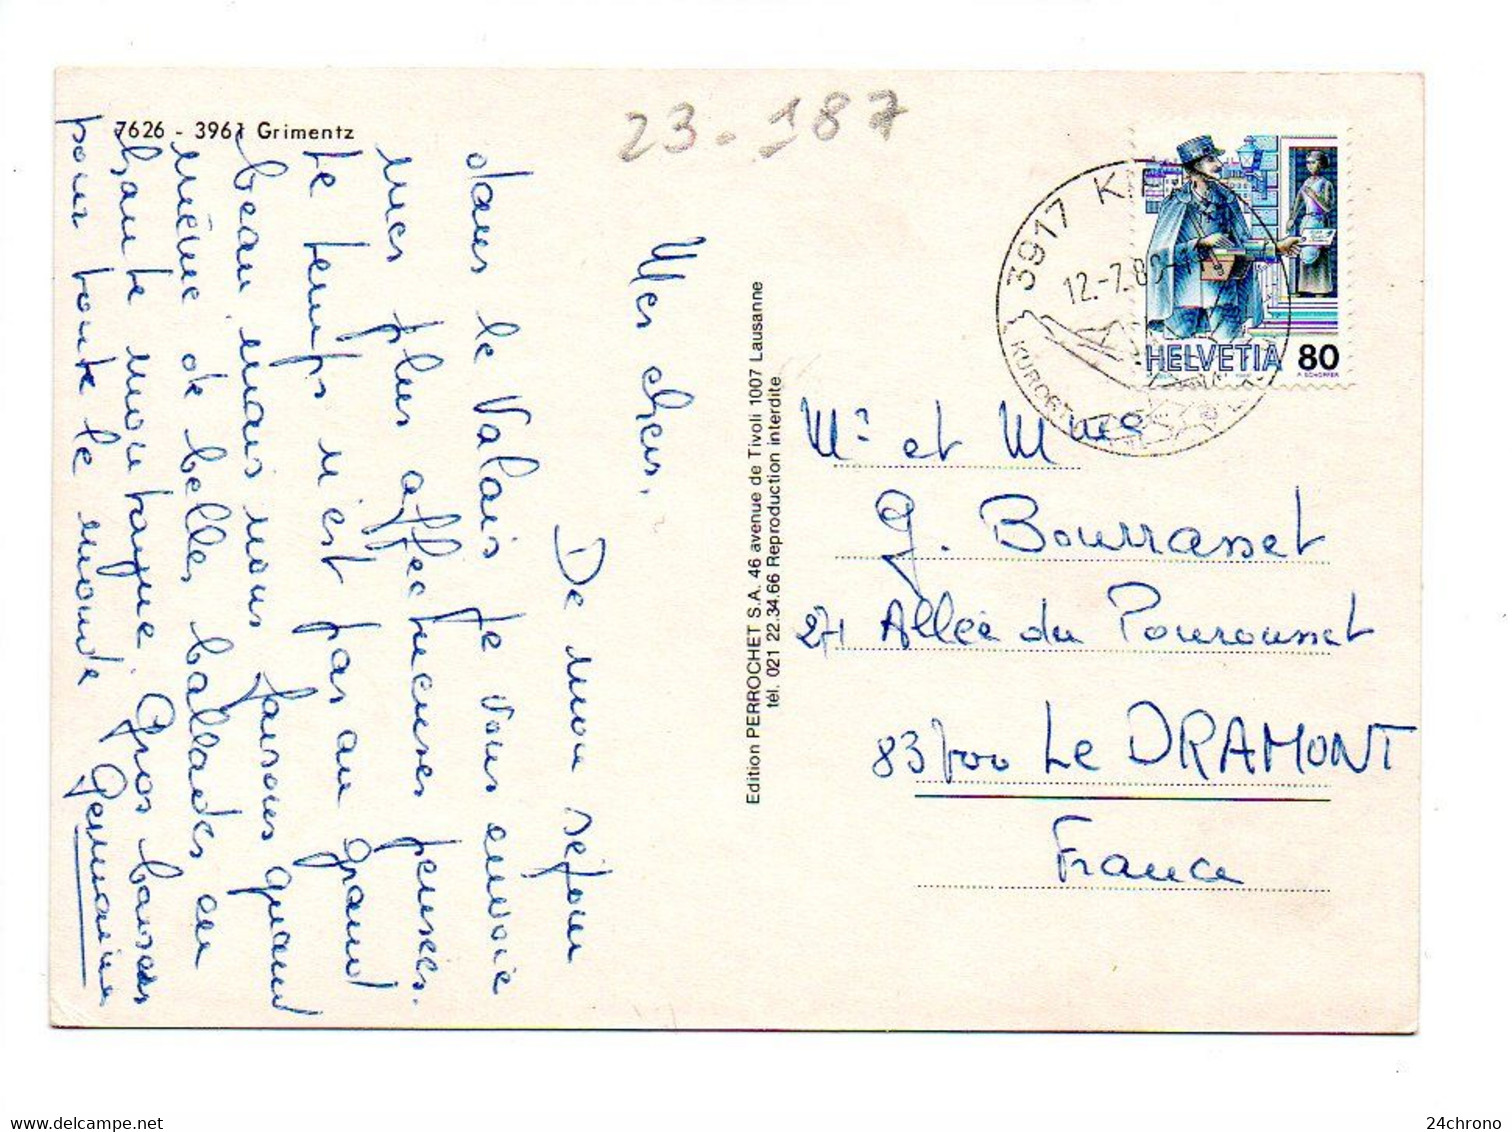 7626 - 3961 Grimentz
23-187
Mes chers.
De mon séjour
dans le Valais je vous envoie
mes plus affectueuses pensées.
Le temps n'est pas au grand
beau, mais nous faisons quand
même de belles ballades en
haute montagne. Gros baisers
pour toute le monde
Germaine
Edition PERROCHET S.A. 46 avenue de Tivoli 1007 Lausanne
tél. 021 22.34.66 Reproduction interdite
3917
12.-7.89
KURORT
HELVETIA 80
Mr et Mme
G. Bourrasset
271 Allée du Pourousset
83700 Le DRAMONT
France
delcampe.net
24chrono